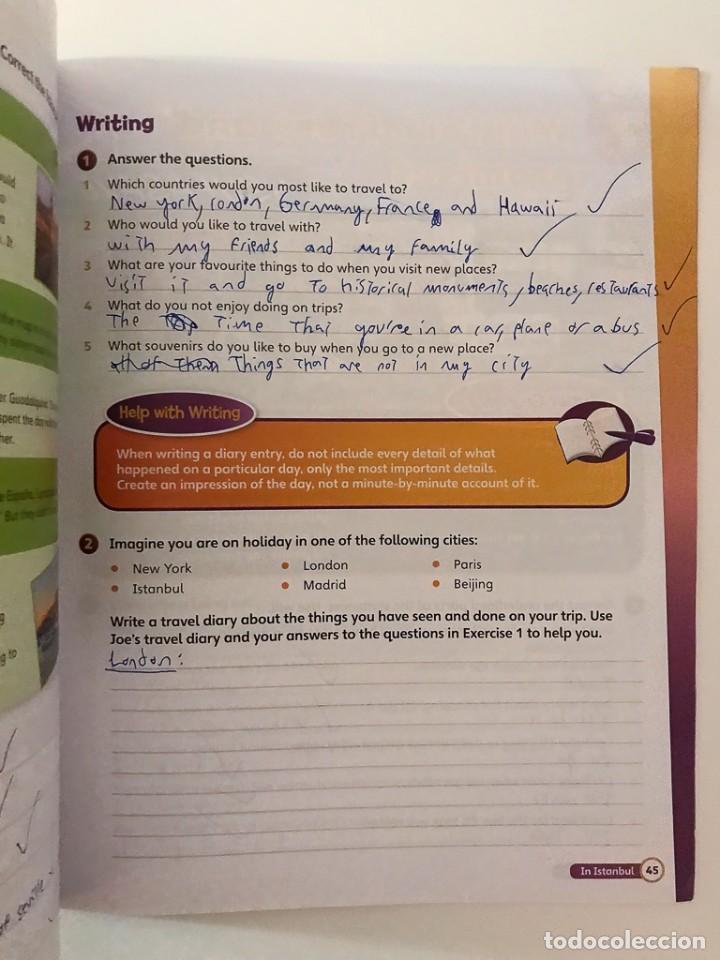 Correct the
Writing
1 Answer the questions.
1 Which countries would you most like to travel to?
New York, London, Germany, France and Hawaii
2 Who would you like to travel with?
with my friends and my family
3 What are your favourite things to do when you visit new places?
Visit it and go To historical monuments, beaches, restaurants
4 What do you not enjoy doing on trips?
The Time That you're in a car, plane or a bus
5 What souvenirs do you like to buy when you go to a new place?
All of them Things That are not in my city
Help with Writing
When writing a diary entry, do not include every detail of what
happened on a particular day, only the most important details.
Create an impression of the day, not a minute-by-minute account of it.
2 Imagine you are on holiday in one of the following cities:
• New York • London • Paris
• Istanbul • Madrid • Beijing
Write a travel diary about the things you have seen and done on your trip. Use
Joe's travel diary and your answers to the questions in Exercise 1 to help you.
London:
In Istanbul 45
todocoleccion.net